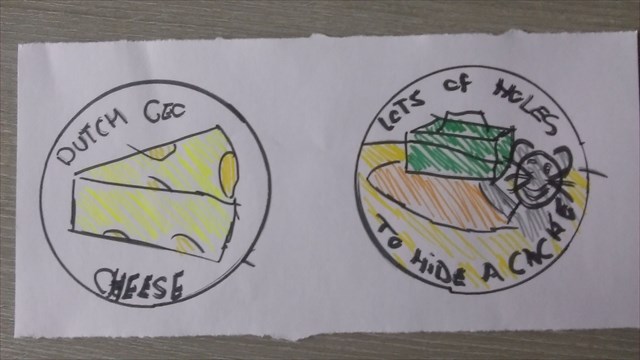 DUTCH GEO
CHEESE
LOTS OF HOLES
TO HIDE A CACHE